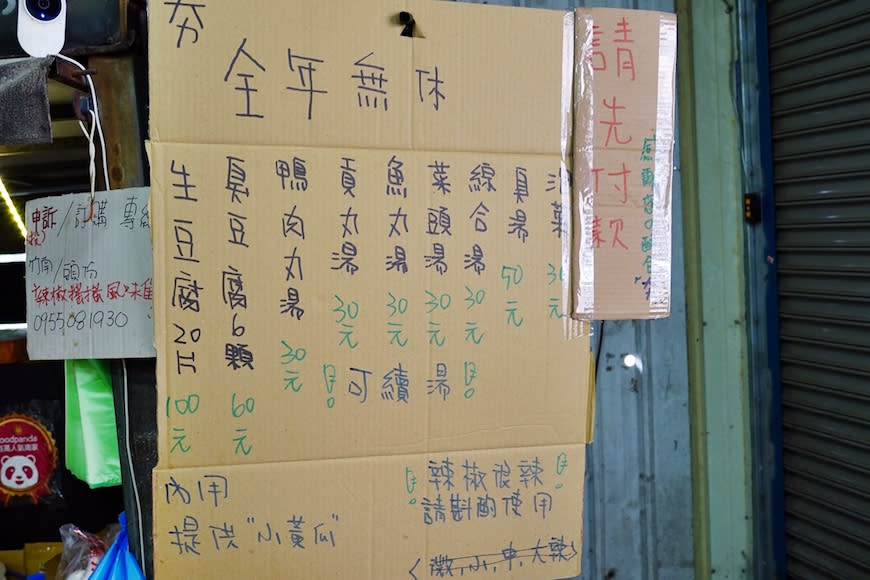 夯
全年無休
請先付款
感謝您的配合
沙茶
30元
臭湯
50元
線合湯
30元
菜頭湯
30元
魚丸湯
30元
貢丸湯
30元
鴨肉丸湯
30元
臭豆腐6顆
60元
生豆腐20片
100元
可續湯
內用
提供"小黃瓜"
辣椒很辣
請斟酌使用
(微,小,中,大辣)
申訴/訂購 專線
竹南/頭份
辣椒搔搔風味
0955081930
foodpanda